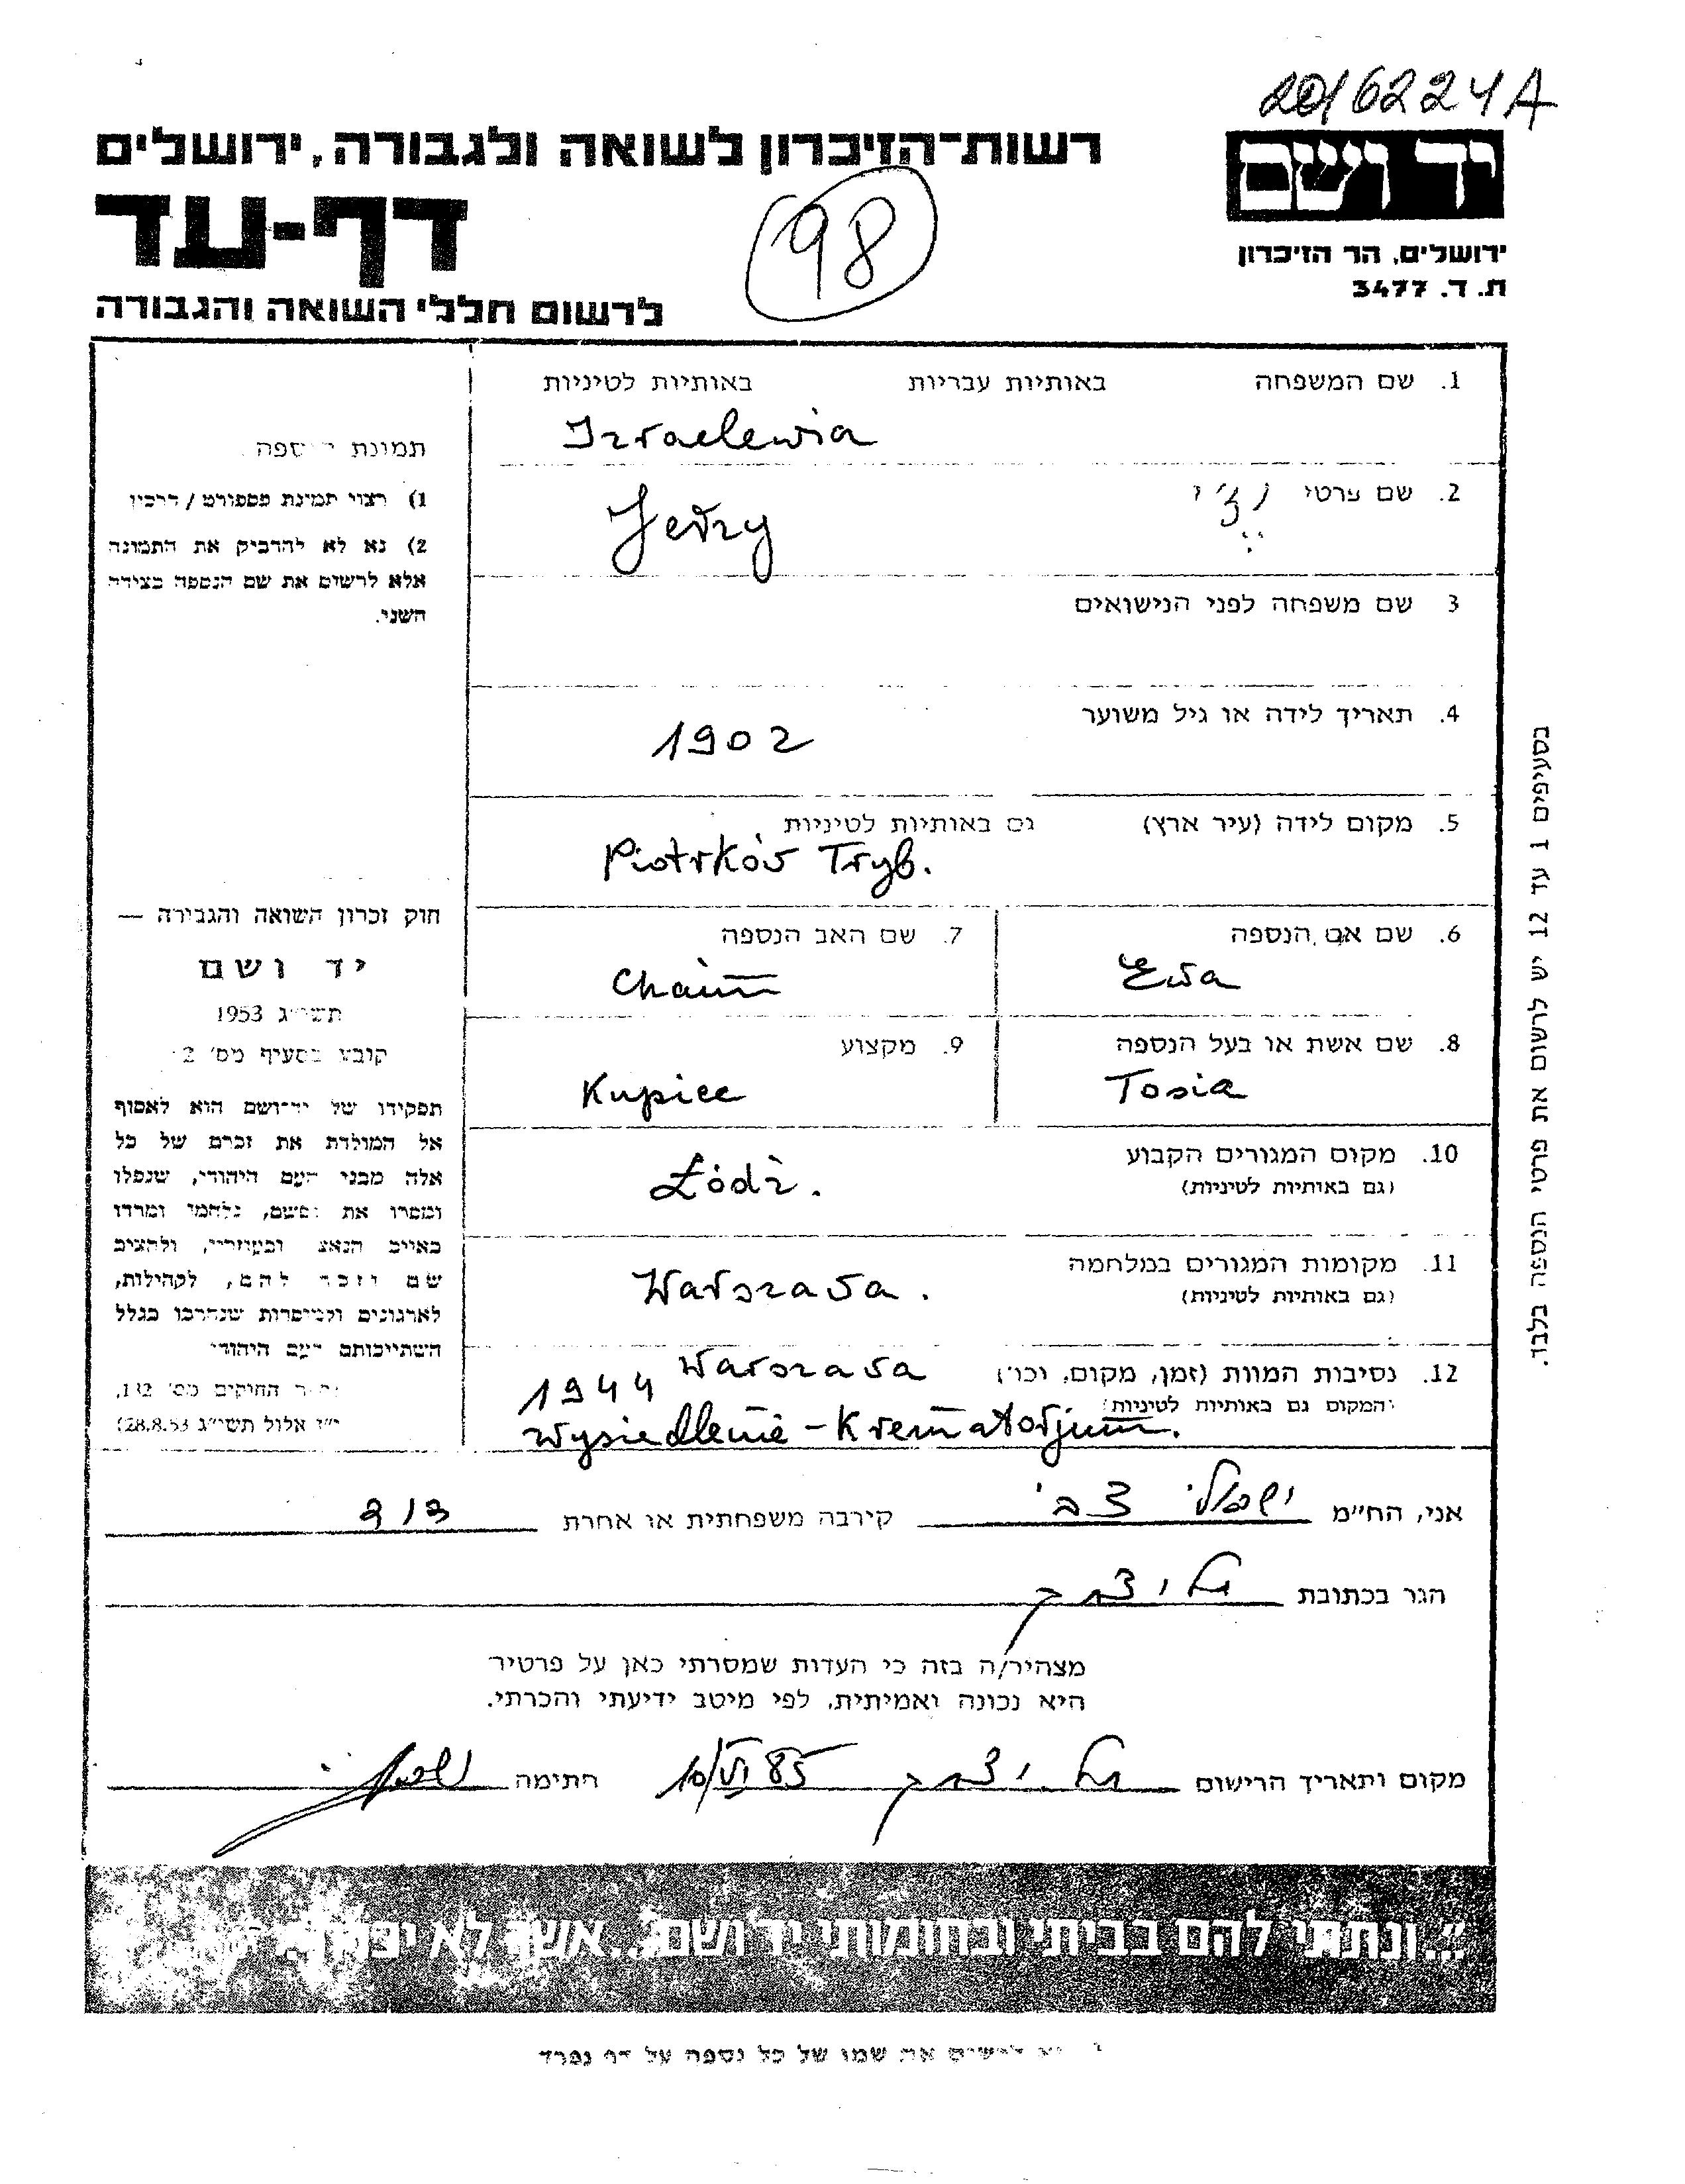 2016224A
רשות-הזיכרון לשואה ולגבורה, ירושלים
יד ושם
דף-עד
98
ירושלים, הר הזיכרון
ת. ד. 3477
לרשום חללי השואה והגבורה
1. שם המשפחה באותיות עבריות באותיות לטיניות
Izraelewia
2. שם פרטי
Jerzy
3 שם משפחה לפני הנישואים
4. תאריך לידה או גיל משוער
1902
5. מקום לידה (עיר ארץ) גם באותיות לטיניות
Piotrków Tryb.
6. שם אם הנספה
Ewa
7. שם האב הנספה
Chaim
8. שם אשת או בעל הנספה
Tosia
9. מקצוע
Kupiec
10. מקום המגורים הקבוע
(גם באותיות לטיניות)
Łódź.
11. מקומות המגורים במלחמה
(גם באותיות לטיניות)
Warszawa.
12. נסיבות המוות (זמן, מקום, וכו')
(המקום גם באותיות לטיניות)
1944 Warszawa
Wysiedlenie - Krematorjum.
תמונת
1) רצוי תמונת פספורט / דרכון
2) נא לא להדביק את התמונה
אלא לרשום את שם הנספה בצידה
השני.
חוק זכרון השואה והגבורה —
יד ושם
תשי"ג 1953
קובע בסעיף מס' 2
תפקידו של יד-ושם הוא לאסוף
אל המולדת את זכרם של כל
אלה מבני העם היהודי, שנפלו
ומסרו את נפשם, נלחמו ומרדו
באויב הנאצי ובעוזריו, ולהציב
שם וזכר להם, לקהילות,
לארגונים ולמוסדות שנחרבו בגלל
השתייכותם לעם היהודי
החוקים מס' 132,
י"ז אלול תשי"ג 28.8.53)
בסעיפים 1 עד 12 יש לרשום את פרטי הנספה בלבד.
אני, הח"מ ישראלי צבי קירבה משפחתית או אחרת דוד
הגר בכתובת
מצהיר/ה בזה כי העדות שמסרתי כאן על פרטיה
היא נכונה ואמיתית, לפי מיטב ידיעתי והכרתי.
מקום ותאריך הרישום 10/VI 85 חתימה
"...ונתתי להם בביתי ובחומותי יד ושם...אשר לא יכרת"
לרשום את שמו של כל נספה על דף נפרד